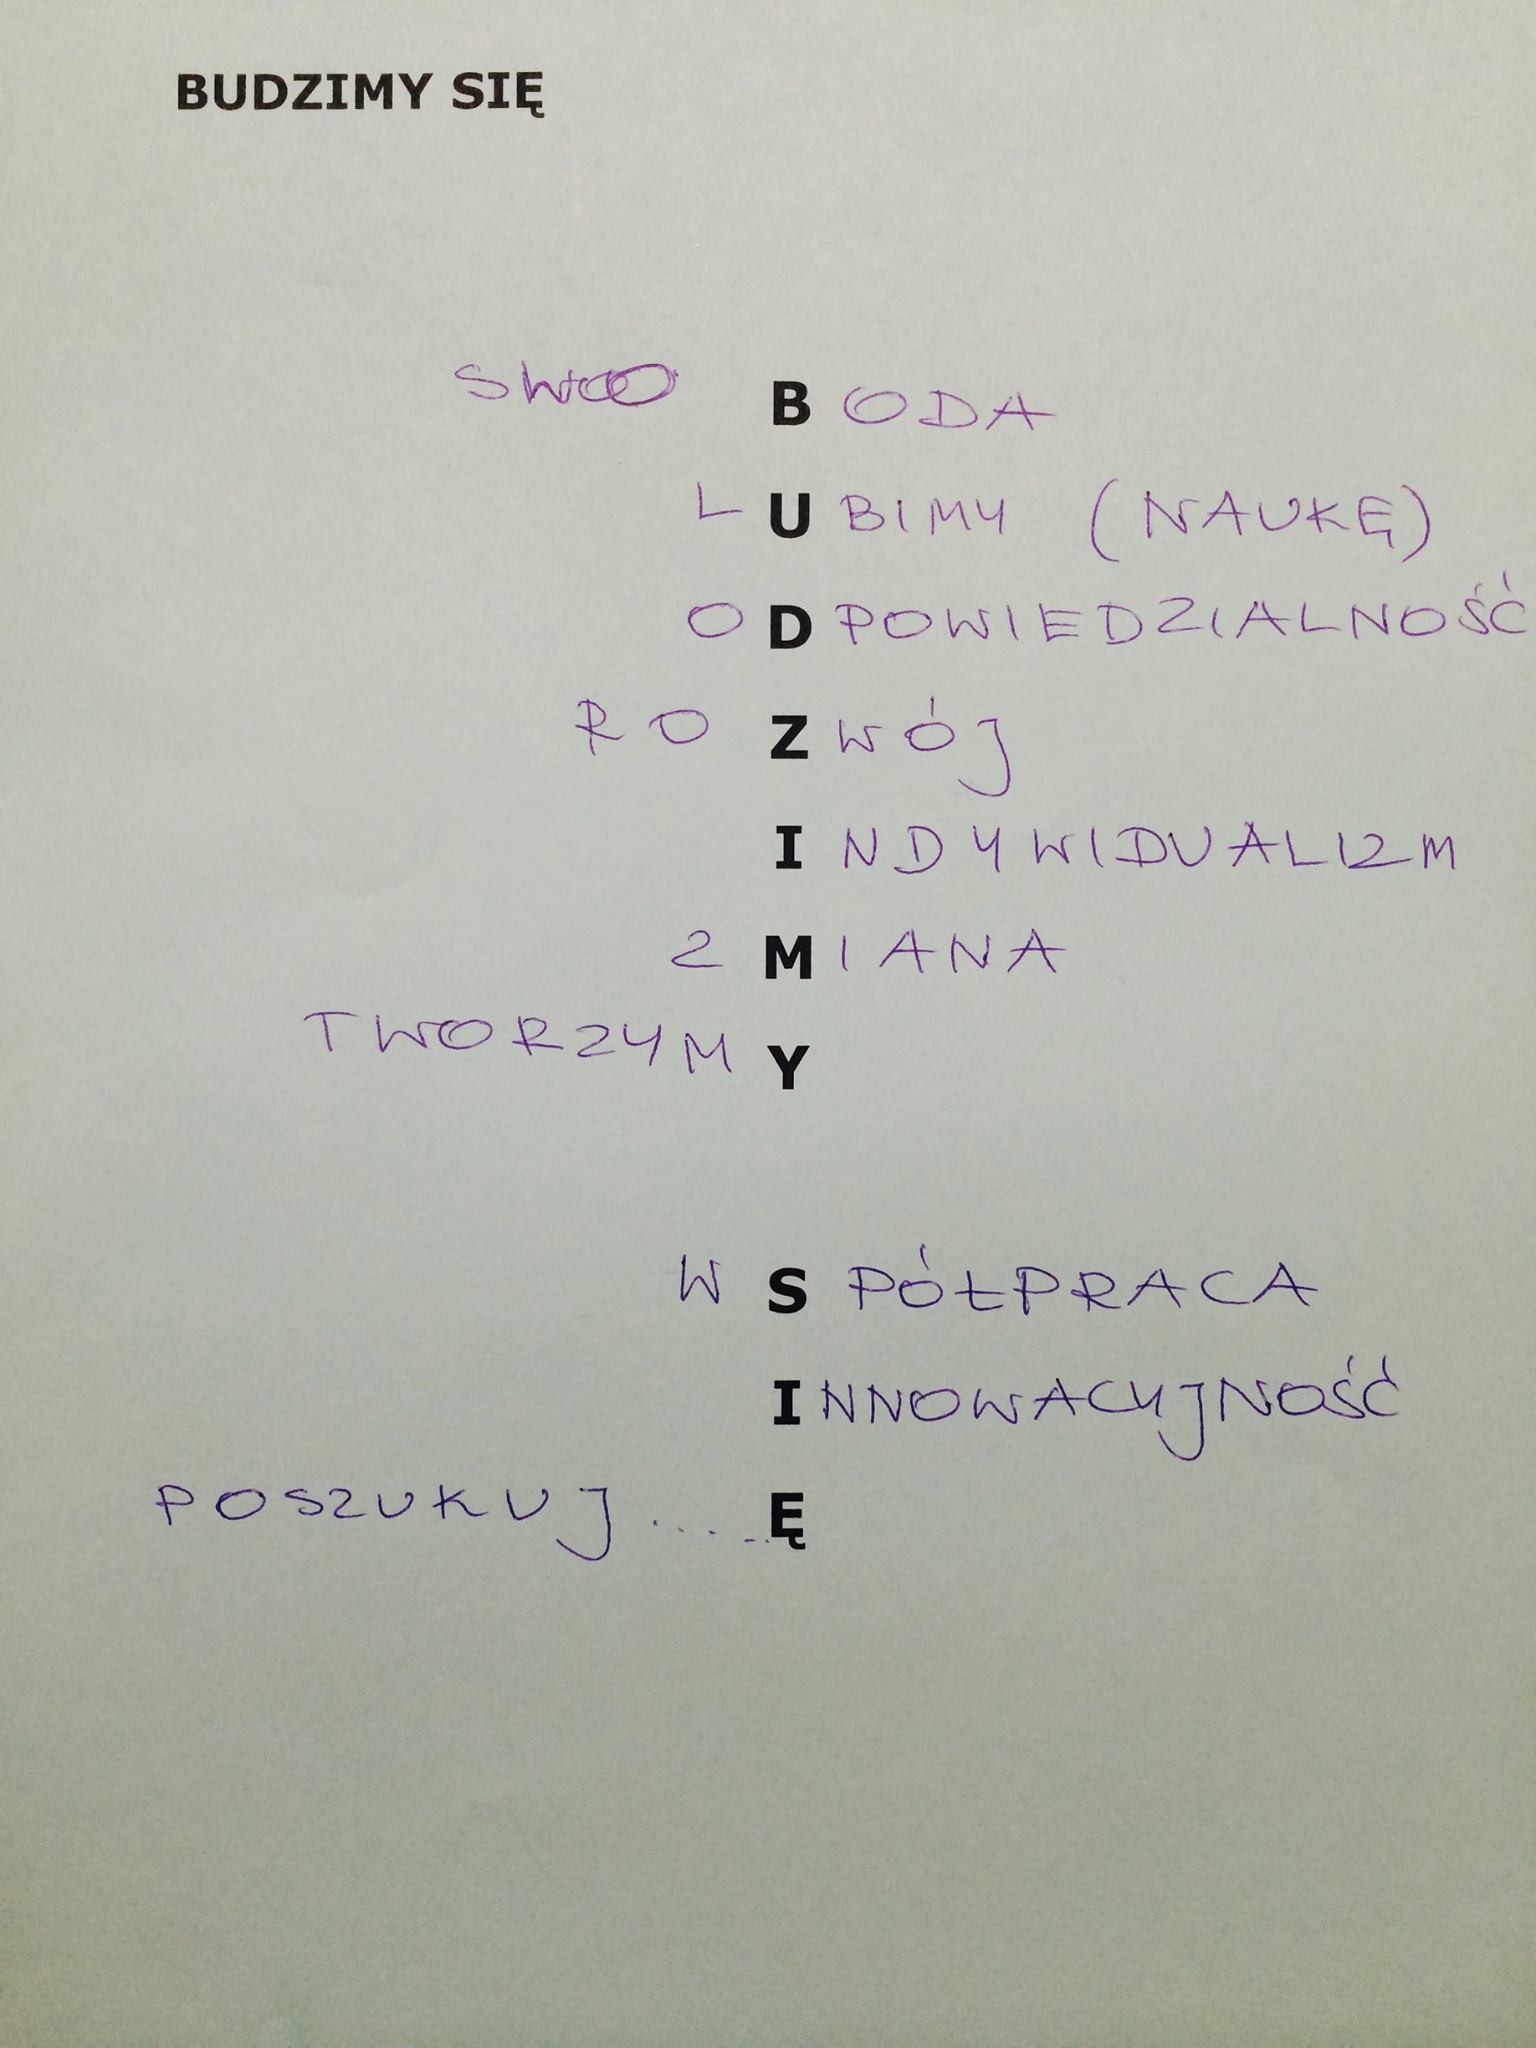 BUDZIMY SIĘ
SWOBODA
LUBIMY (NAUKĘ)
ODPOWIEDZIALNOŚĆ
ROZWÓJ
INDYWIDUALIZM
ZMIANA
TWORZYMY
WSPÓŁPRACA
INNOWACYJNOŚĆ
POSZUKUJ.....Ę